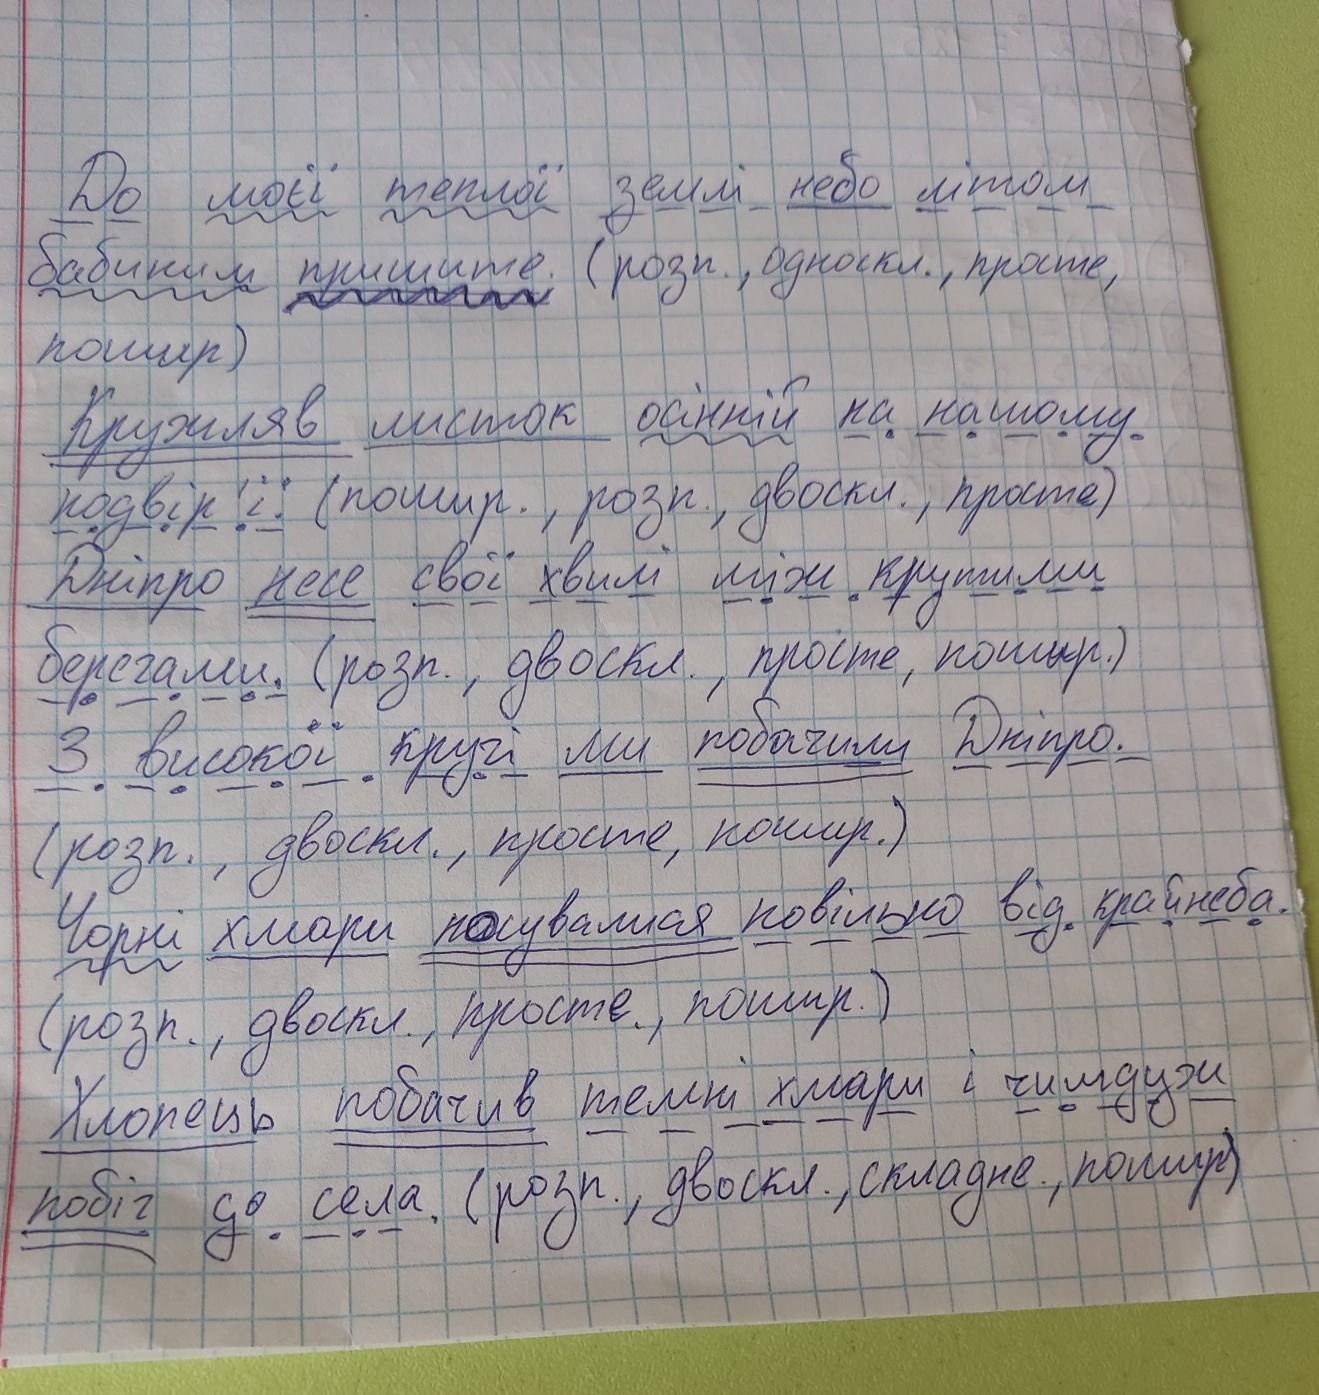 До моєї теплої землі небо літом
бабиним пришите. (розп., односкл., просте,
пошир)
Кружляв листок осінній на нашому
подвір'ї. (пошир., розп., двоскл., просте)
Дніпро несе свої хвилі між крутими
берегами. (розп., двоскл., просте, пошир.)
З високої кручі ми побачили Дніпро.
(розп., двоскл., просте, пошир.)
Чорні хмари посувалися повільно від крайнеба.
(розп., двоскл., просте., пошир.)
Хлопець побачив темні хмари і чимдуж
побіг до села. (розп., двоскл., складне., пошир)